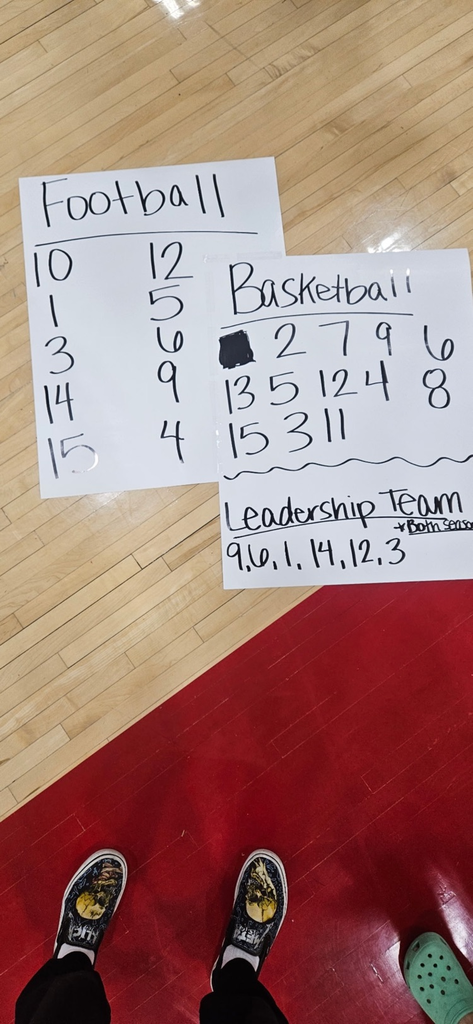 Football
10 12
1 5
3 6
14 9
15 4
Basketball
2 7 9 6
13 5 12 4 8
15 3 11
Leadership Team
*Both Seaso
9, 6, 1, 14, 12, 3